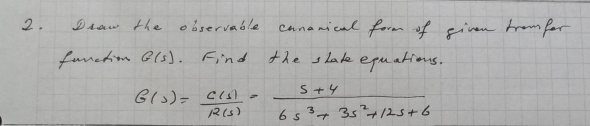 2. Draw the observable cananical form of given tranfer
function G(s). Find the state equations.
G(s) = C(s)/R(s) = (s+4)/(6s³+3s²+12s+6)